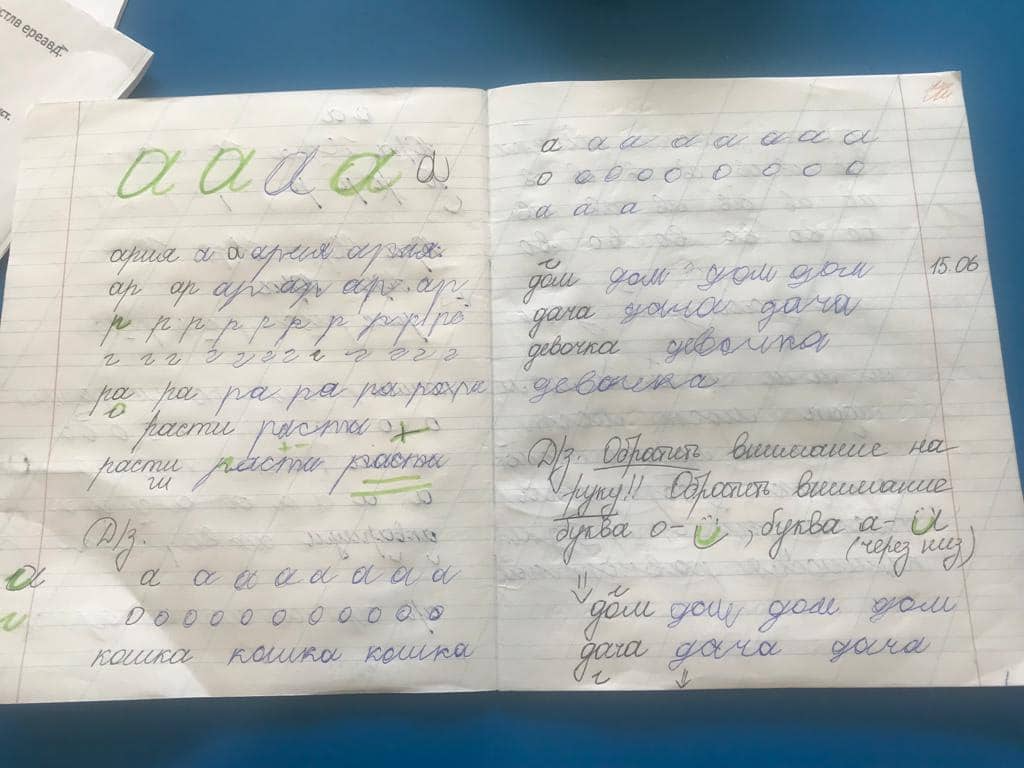 ереавд.
а а а а а
ария а а ария ария
ар ар ар ар ар ар
р р р р р р р р р р
г г г г г г г г г г
ра ра ра ра ра ра ра
о
расти расти
расти расти расти
ти
Д/з.
а а а а а а а
о о о о о о о о о о о
кошка кошка кошка
а а а а а а а а
о о о о о о о о о
а а а
дом дом дом дом
15.06
дача дача дача
девочка девочка
девочка
Д/з. Обратить внимание на
руку!! Обратить внимание
буква о- , буква а-
(через низ)
дом дом дом дом
дача дача дача